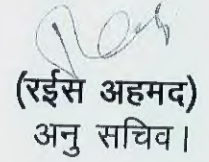 (रईस अहमद)
अनु सचिव।